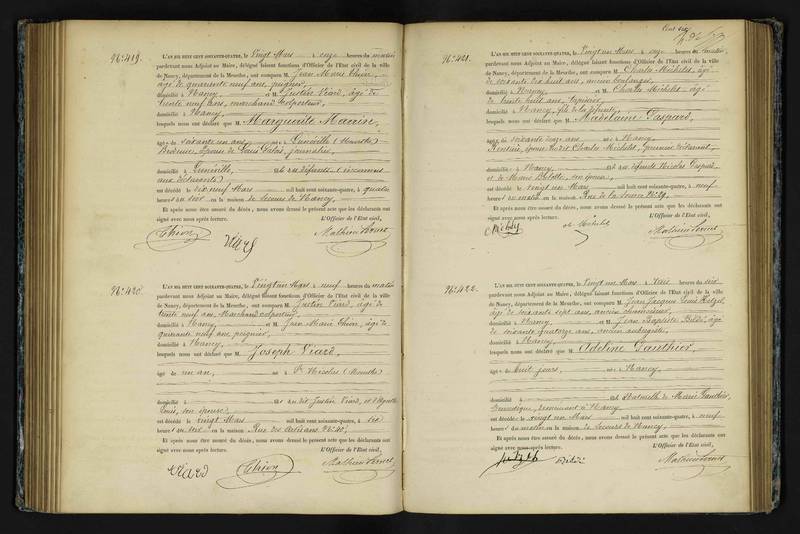 No. 419.
L'AN MIL HUIT CENT SOIXANTE-QUATRE, le Vingt Mars à onze heures du matin
pardevant nous Adjoint au Maire, délégué faisant fonctions d'Officier de l'Etat civil de la ville
de Nancy, département de la Meurthe, ont comparu M. Jean Marie Thion,
âgé de quarante neuf ans, peignier,
domicilié à Nancy, et M. Justin Viard, âgé de
trente neuf ans, marchand colporteur,
domicilié à Nancy,
lesquels nous ont déclaré que M. Marguerite
âgée de soixante un ans, né à Lunéville (Meurthe)
Brodeuse, épouse de Louis journalier,
domicilié à Lunéville,
est décédé le dix neuf Mars mil huit cent soixante-quatre, à quatre
heures du soir en la maison de Secours de Nancy,
Et après nous être assuré du décès, nous avons dressé le présent acte que les déclarants ont
signé avec nous après lecture. L'Officier de l'Etat civil,
Thion Viard
No. 420.
L'AN MIL HUIT CENT SOIXANTE-QUATRE, le Vingt un Mars à neuf heures du matin
pardevant nous Adjoint au Maire, délégué faisant fonctions d'Officier de l'Etat civil de la ville
de Nancy, département de la Meurthe, ont comparu M. Justin Viard, âgé de
trente neuf ans, Marchand colporteur,
domicilié à Nancy, et M. Jean Marie Thion, âgé de
quarante neuf ans, peignier,
domicilié à Nancy,
lesquels nous ont déclaré que M. Joseph Viard,
âgé de un an, né à St. Nicolas (Meurthe)
domicilié à fils du dit Justin Viard, et d'
son épouse,
est décédé le vingt Mars mil huit cent soixante-quatre, à six
heures du soir en la maison Rue des Artisans No. 40,
Et après nous être assuré du décès, nous avons dressé le présent acte que les déclarants ont
signé avec nous après lecture. L'Officier de l'Etat civil,
Viard Thion
No. 421.
L'AN MIL HUIT CENT SOIXANTE-QUATRE, le Vingt un Mars à onze heures du matin,
pardevant nous Adjoint au Maire, délégué faisant fonctions d'Officier de l'Etat civil de la ville
de Nancy, département de la Meurthe, ont comparu M. Charles Michelet, âgé
de soixante dix huit ans, ancien boulanger,
domicilié à Nancy, et M. Charles Michelet âgé
de trente huit ans, tapissier,
domicilié à Nancy, fils de la défunte,
lesquels nous ont déclaré que M. Madelaine Gaspard,
âgée de soixante onze ans née à Nancy,
Rentière, épouse du dit Charles Michelet, premier déclarant,
domicilié à Nancy fille des défunts Nicolas Gaspard,
et de Marie son épouse,
est décédé le vingt un Mars mil huit cent soixante-quatre, à neuf
heures du matin en la maison Rue de la
Et après nous être assuré du décès, nous avons dressé le présent acte que les déclarants ont
signé avec nous après lecture. L'Officier de l'Etat civil,
ch Michelet
No. 422.
L'AN MIL HUIT CENT SOIXANTE-QUATRE, le Vingt un Mars à trois heures du soir
pardevant nous Adjoint au Maire, délégué faisant fonctions d'Officier de l'Etat civil de la ville
de Nancy, département de la Meurthe, ont comparu M. Jean Jacques Louis
âgé de soixante sept ans, ancien
domicilié à Nancy, et M. Jean Baptiste âgé
de soixante quatorze ans, ancien aubergiste,
domicilié à Nancy,
lesquels nous ont déclaré que M. Adeline Gauthier,
âgée de huit jours, née à Nancy,
domicilié à fille naturelle de Marie Gauthier,
domestique, demeurant à Nancy,
est décédé le vingt un Mars mil huit cent soixante-quatre, à neuf
heures du matin en la maison de Secours de Nancy,
Et après nous être assuré du décès, nous avons dressé le présent acte que les déclarants ont
signé avec nous après lecture. L'Officier de l'Etat civil,